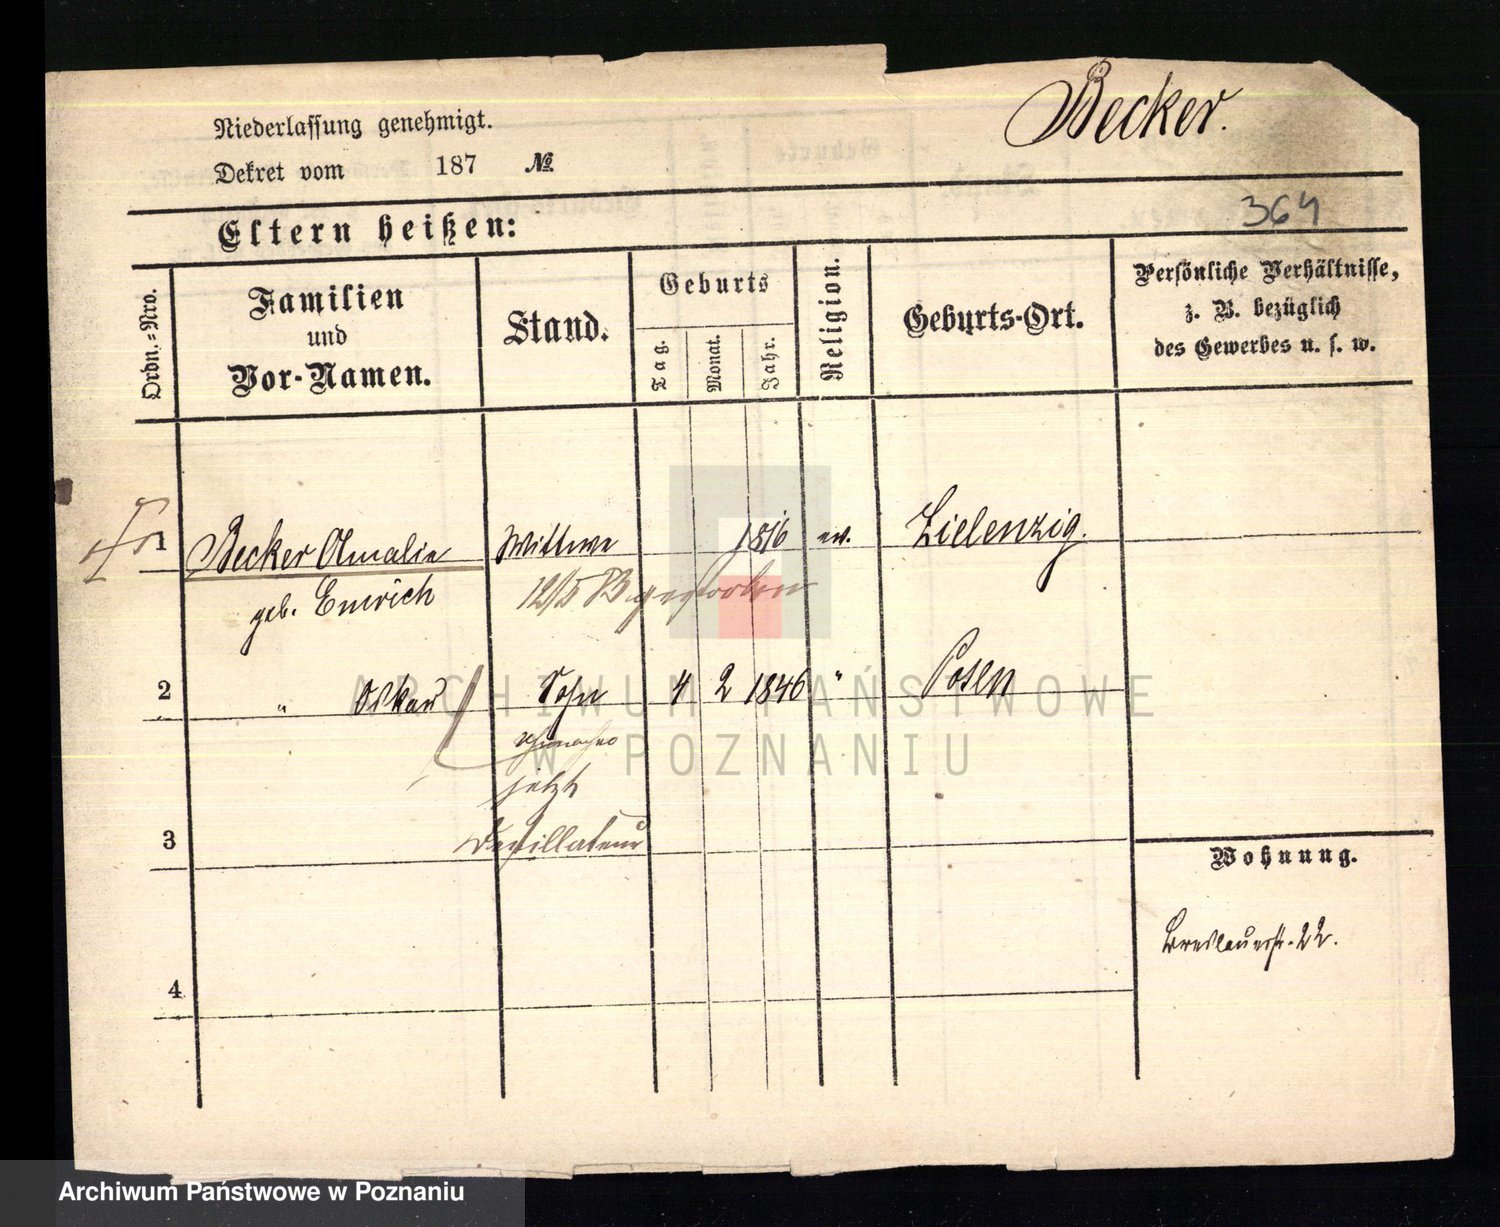 Becker.
Niederlassung genehmigt.
Dekret vom 187 №
364
Eltern heißen:
Ordn.-Nro.
Familien
und
Vor-Namen.
Stand.
Geburts
Tag.
Monat.
Jahr.
Religion.
Geburts-Ort.
Persönliche Verhältnisse,
z. B. bezüglich
des Gewerbes u. s. w.
1 Becker Amalie Wittwe 1816 ev. Zielenzig.
geb. Emrich 12/5 gestorben
2 " Oskar Sohn 4 2 1846 " Posen
jetzt
3 Destillateur
Wohnung.
Breslauerstr. 22.
4
ARCHIWUM PAŃSTWOWE
W POZNANIU
Archiwum Państwowe w Poznaniu